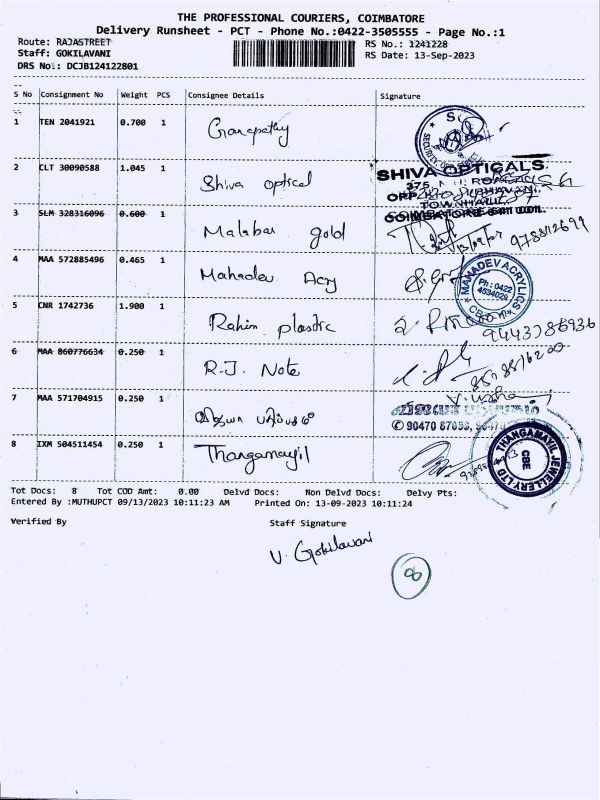 THE PROFESSIONAL COURIERS, COIMBATORE
Delivery Runsheet - PCT - Phone No.:0422-3505555 - Page No.:1
Route: RAJASTREET RS No.: 1241228
Staff: GOKILAVANI RS Date: 13-Sep-2023
DRS No.: DCJB124122801
S No Consignment No Weight PCS Consignee Details Signature
1 TEN 2041921 0.700 1 Ganapathy
2 CLT 30090588 1.045 1 Shiva optical
SHIVA OPTICALS,
3 SLM 328316096 0.600 1 Malabar gold
4 MAA 572885496 0.465 1 Mahadev Acry
MAHADEV ACRYLICS
Ph : 0422
4534029
CBE
5 CNR 1742736 1.900 1 Rahim plastic
6 MAA 860776634 0.250 1 R.J. Note
7 MAA 571704915 0.250 1 விஜயா பதிப்பகம்
விஜயா பதிப்பகம்
8 IXM 504511454 0.250 1 Thangamayil
THANGAMAYIL JEWELLERY LTD
CBE
Tot Docs: 8 Tot COD Amt: 0.00 Delvd Docs: Non Delvd Docs: Delvy Pts:
Entered By :MUTHUPCT 09/13/2023 10:11:23 AM Printed On: 13-09-2023 10:11:24
Verified By Staff Signature
V. Gokilavani
8